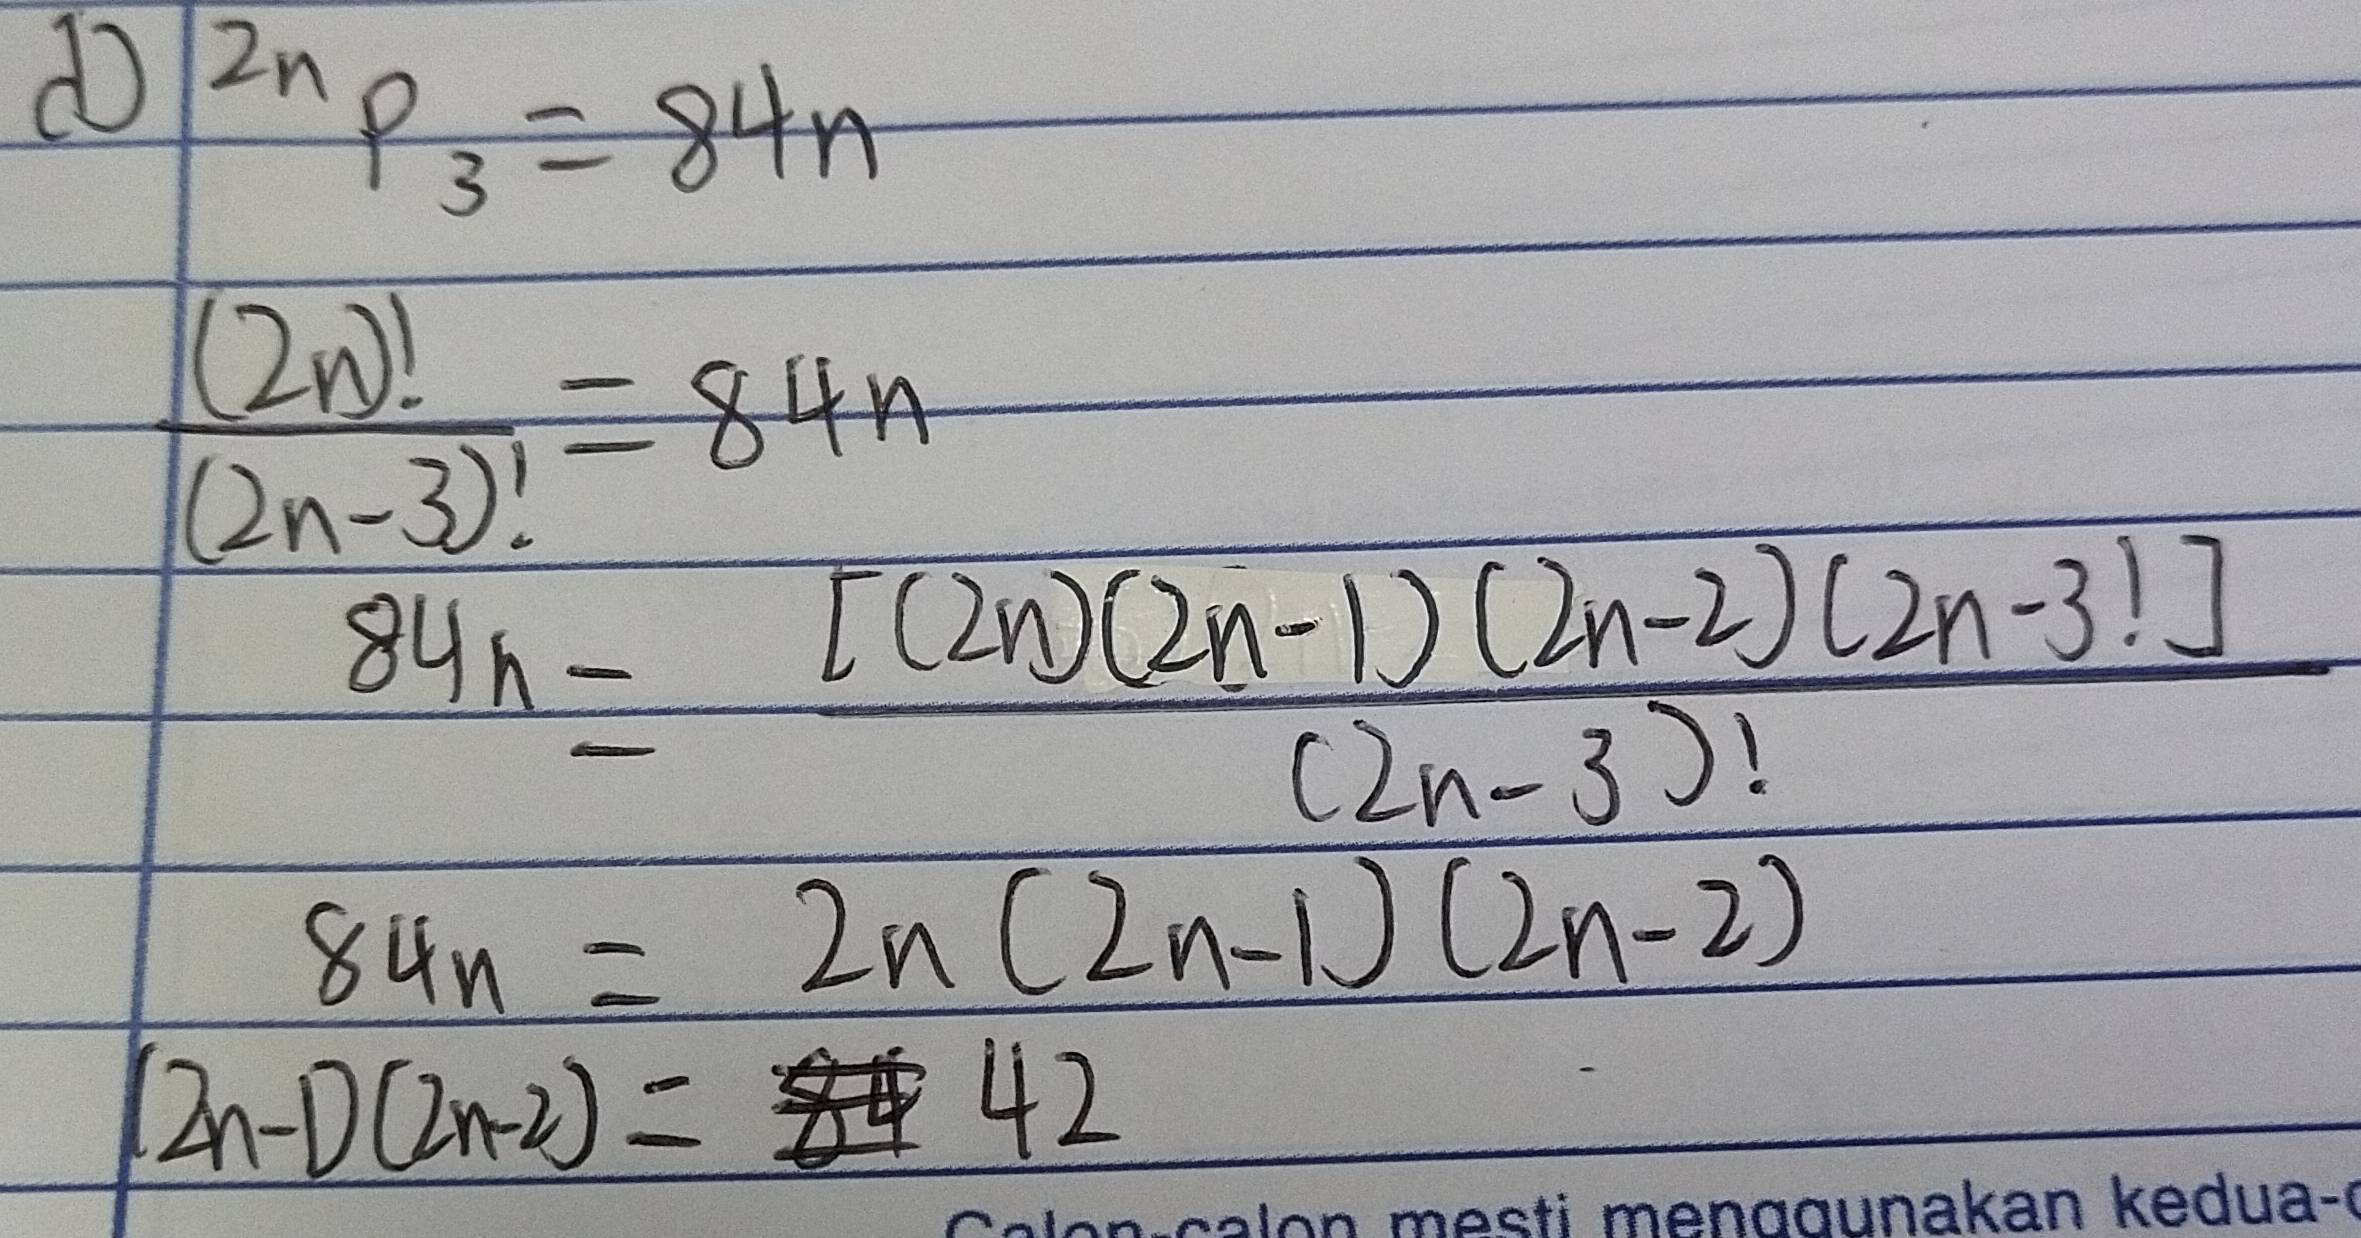 d) 2n P 3 = 84n
(2n)! / (2n-3)! = 84n
84n = [(2n)(2n-1)(2n-2)(2n-3!] / (2n-3)!
84n = 2n(2n-1)(2n-2)
(2n-1)(2n-2) = 84 42
Calon-calon mesti menggunakan kedua-